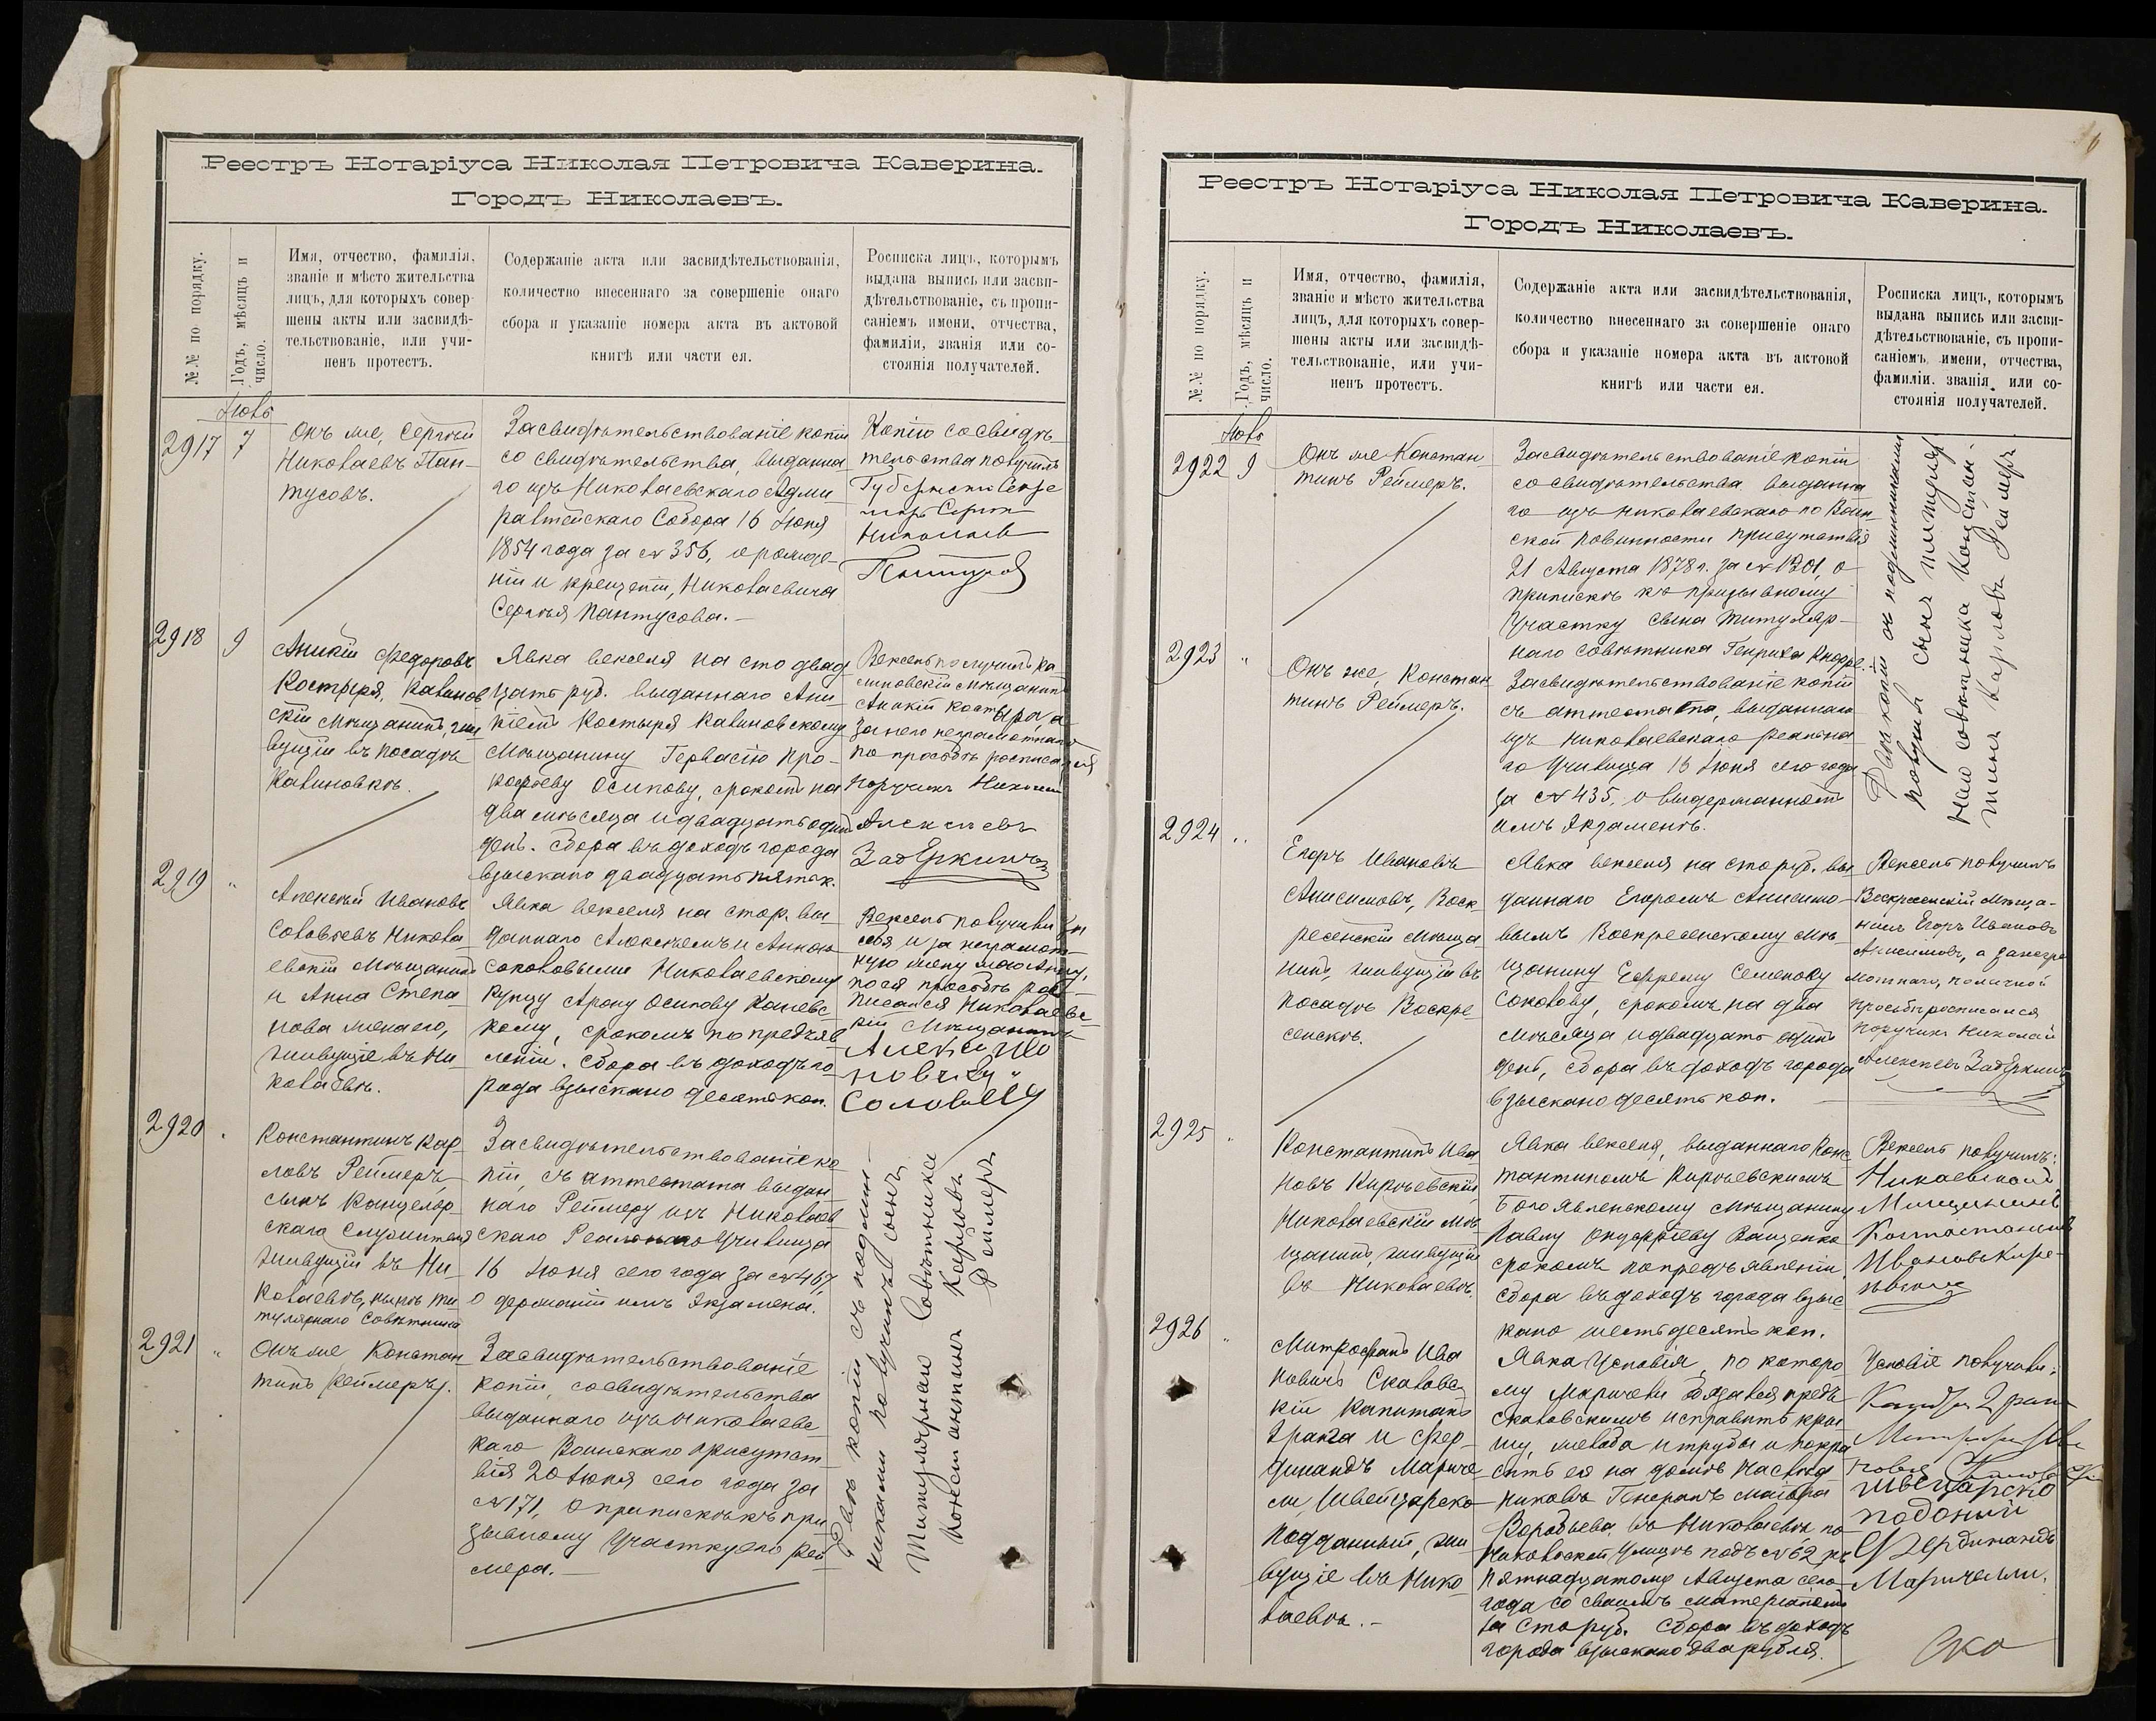 Реестръ Нотаріуса Николая Петровича Каверина.
Городъ Николаевъ.
№№ по порядку.
Годъ, мѣсяцъ и
число.
Имя, отчество, фамилія,
званіе и мѣсто жительства
лицъ, для которыхъ совер-
шены акты или засвидѣ-
тельствованіе, или учи-
ненъ протестъ.
Содержаніе акта или засвидѣтельствованія,
количество внесеннаго за совершеніе онаго
сбора и указаніе номера акта въ актовой
книгѣ или части ея.
Росписка лицъ, которымъ
выдана выпись или засви-
дѣтельствованіе, съ пропи-
саніемъ имени, отчества,
фамиліи, званія или со-
стоянія получателей.
2917
7
Онъ же, Сергѣй
Николаевъ Пан-
тусовъ.
Засвидѣтельствованіе копіи
со свидѣтельства, выданна
го изъ Николаевскаго Адми
ралтейскаго Собора 16 Іюня
1854 года за № 356, о рожде-
ніи и крещеніи, Николаевича
Сергѣя Пантусова.
Копію со свидѣ
тельства получилъ
2918
9
Аникій Федоровъ
Костыря, Калинов
скій мѣщанинъ, жи
вущій въ посадѣ
Калиновкѣ.
Явка векселя на сто двад
цать руб. выданнаго Ани
кіемъ Костыря Калиновскому
мѣщанину Гервасію Про-
кофьеву Осипову, срокомъ на
два мѣсяца и двадцать одинъ
день. Сбора въ доходъ города
взыскано двадцать пять к.
Вексель получилъ Ка
линовскій мѣщанинъ
Аникій Костыря а
за него неграмотнаго
по просьбѣ росписался
Поручикъ Николай
Алексѣевъ
Задеркинъ
2919
"
Алексѣй Ивановъ
Соловьевъ Никола
евскій мѣщанинъ
и Анна Степа
нова жена его,
живущіе въ Ни
колаевѣ.
Явка векселя на сто р. вы
даннаго Алексѣемъ и Анною
Соловьевыми Николаевскому
купцу Арону Осипову Каневс
кому, срокомъ по предъяв
леніи. Сбора въ доходъ го
рода взыскано десять коп.
Вексель получили за
себя и за неграмот
ную жену мою Анну,
по ея просьбѣ рос
писался Николаевс
кій мѣщанинъ
2920
"
Константинъ Кар
ловъ Реймеръ,
сынъ Канцеляр
скаго Служителя
живущій въ Ни
колаевѣ, нынѣ ти
тулярнаго Совѣтника
Засвидѣтельствованіе ко
піи, съ аттестата выдан
наго Реймеру изъ Николаев
скаго Реальнаго Училища
16 Іюня сего года за № 467,
о держаніи имъ экзамена.
2921
"
Онъ же Констан
тинъ Реймеръ.
Засвидѣтельствованіе
копіи, со свидѣтельства
выданнаго изъ Николаевс
каго Воинскаго присутст
вія 20 Іюня сего года за
№ 171, о припискѣ къ при
зывному участку его Рей
мера.
Двѣ копіи съ подлин-
никами получилъ сынъ
Титулярнаго Совѣтника
Константинъ Карловъ
Реймеръ
Реестръ Нотаріуса Николая Петровича Каверина.
Городъ Николаевъ.
№№ по порядку.
Годъ, мѣсяцъ и
число.
Имя, отчество, фамилія,
званіе и мѣсто жительства
лицъ, для которыхъ совер-
шены акты или засвидѣ-
тельствованіе, или учи-
ненъ протестъ.
Содержаніе акта или засвидѣтельствованія,
количество внесеннаго за совершеніе онаго
сбора и указаніе номера акта въ актовой
книгѣ или части ея.
Росписка лицъ, которымъ
выдана выпись или засви-
дѣтельствованіе, съ пропи-
саніемъ имени, отчества,
фамиліи, званія, или со-
стоянія получателей.
2922
9
Онъ же Констан
тинъ Реймеръ.
Засвидѣтельствованіе копіи
со свидѣтельства выданна
го изъ Николаевскаго по Воин
ской повинности присутствія
21 Августа 1878 г. за № 1201, о
припискѣ къ призывному
участку сына титуляр-
наго совѣтника Генриха Кнорре.
2923
"
Онъ же, Констан
тинъ Реймеръ.
Засвидѣтельствованіе копіи
съ аттестата, выданнаго
изъ Николаевскаго реальна
го училища 16 Іюня сего года
за № 435, о выдержанномъ
имъ экзаменѣ.
Двѣ копіи съ подлинниками
получилъ сынъ титуляр
наго совѣтника Констан-
тинъ Карловъ Реймеръ
2924
"
Егоръ Ивановъ
Анисимовъ, Воск-
ресенскій мѣща
нинъ, живущій въ
посадѣ Воскре
сенскѣ.
Явка векселя на сто руб. вы
даннаго Егоромъ Анисимо
вымъ Воскресенскому мѣ
щанину Ефрему Семенову
Соколову, срокомъ на два
мѣсяца и двадцать одинъ
день, сбора въ доходъ города
взыскано десять коп.
Вексель получилъ
Воскресенскій мѣща-
нинъ Егоръ Ивановъ
Анисимовъ, а за негра
мотнаго, по личной
просьбѣ росписался
Поручикъ Николай
Алексѣевъ Задеркинъ
2925
"
Константинъ Ива
новъ Кирѣевскій
Николаевскій мѣ
щанинъ, живущій
въ Николаевѣ.
Явка векселя, выданнаго Конс
тантиномъ Кирѣевскимъ
Богоявленскому мѣщанину
Павлу Онуфріеву Ващенко
срокомъ по предъявленіи.
Сбора въ доходъ города взыс
кано шестьдесятъ коп.
Вексель получилъ:
2926
"
Митрофанъ Ива
новичъ Скаловс
кій Капитанъ
2 ранга и Фер-
динандъ Мариче
ли, Швейцарско
подданный, жи
вущіе въ Нико
лаевѣ.
Явка условія, по которо
му Маричели обязался предъ
Скаловскимъ исправить кры
шу, желоба и трубы и покра
сить ея на домѣ наслѣд
никовъ Генералъ Маіора
Воробьева въ Николаевѣ по
Никольской улицѣ подъ № 62 къ
пятнадцатому Августа сего
года со своимъ матеріаломъ
за сто руб. Сбора въ доходъ
города взыскано два рубля.
Условіе получили:
Швецарско
поданий
Фердинандъ
Маричелли.